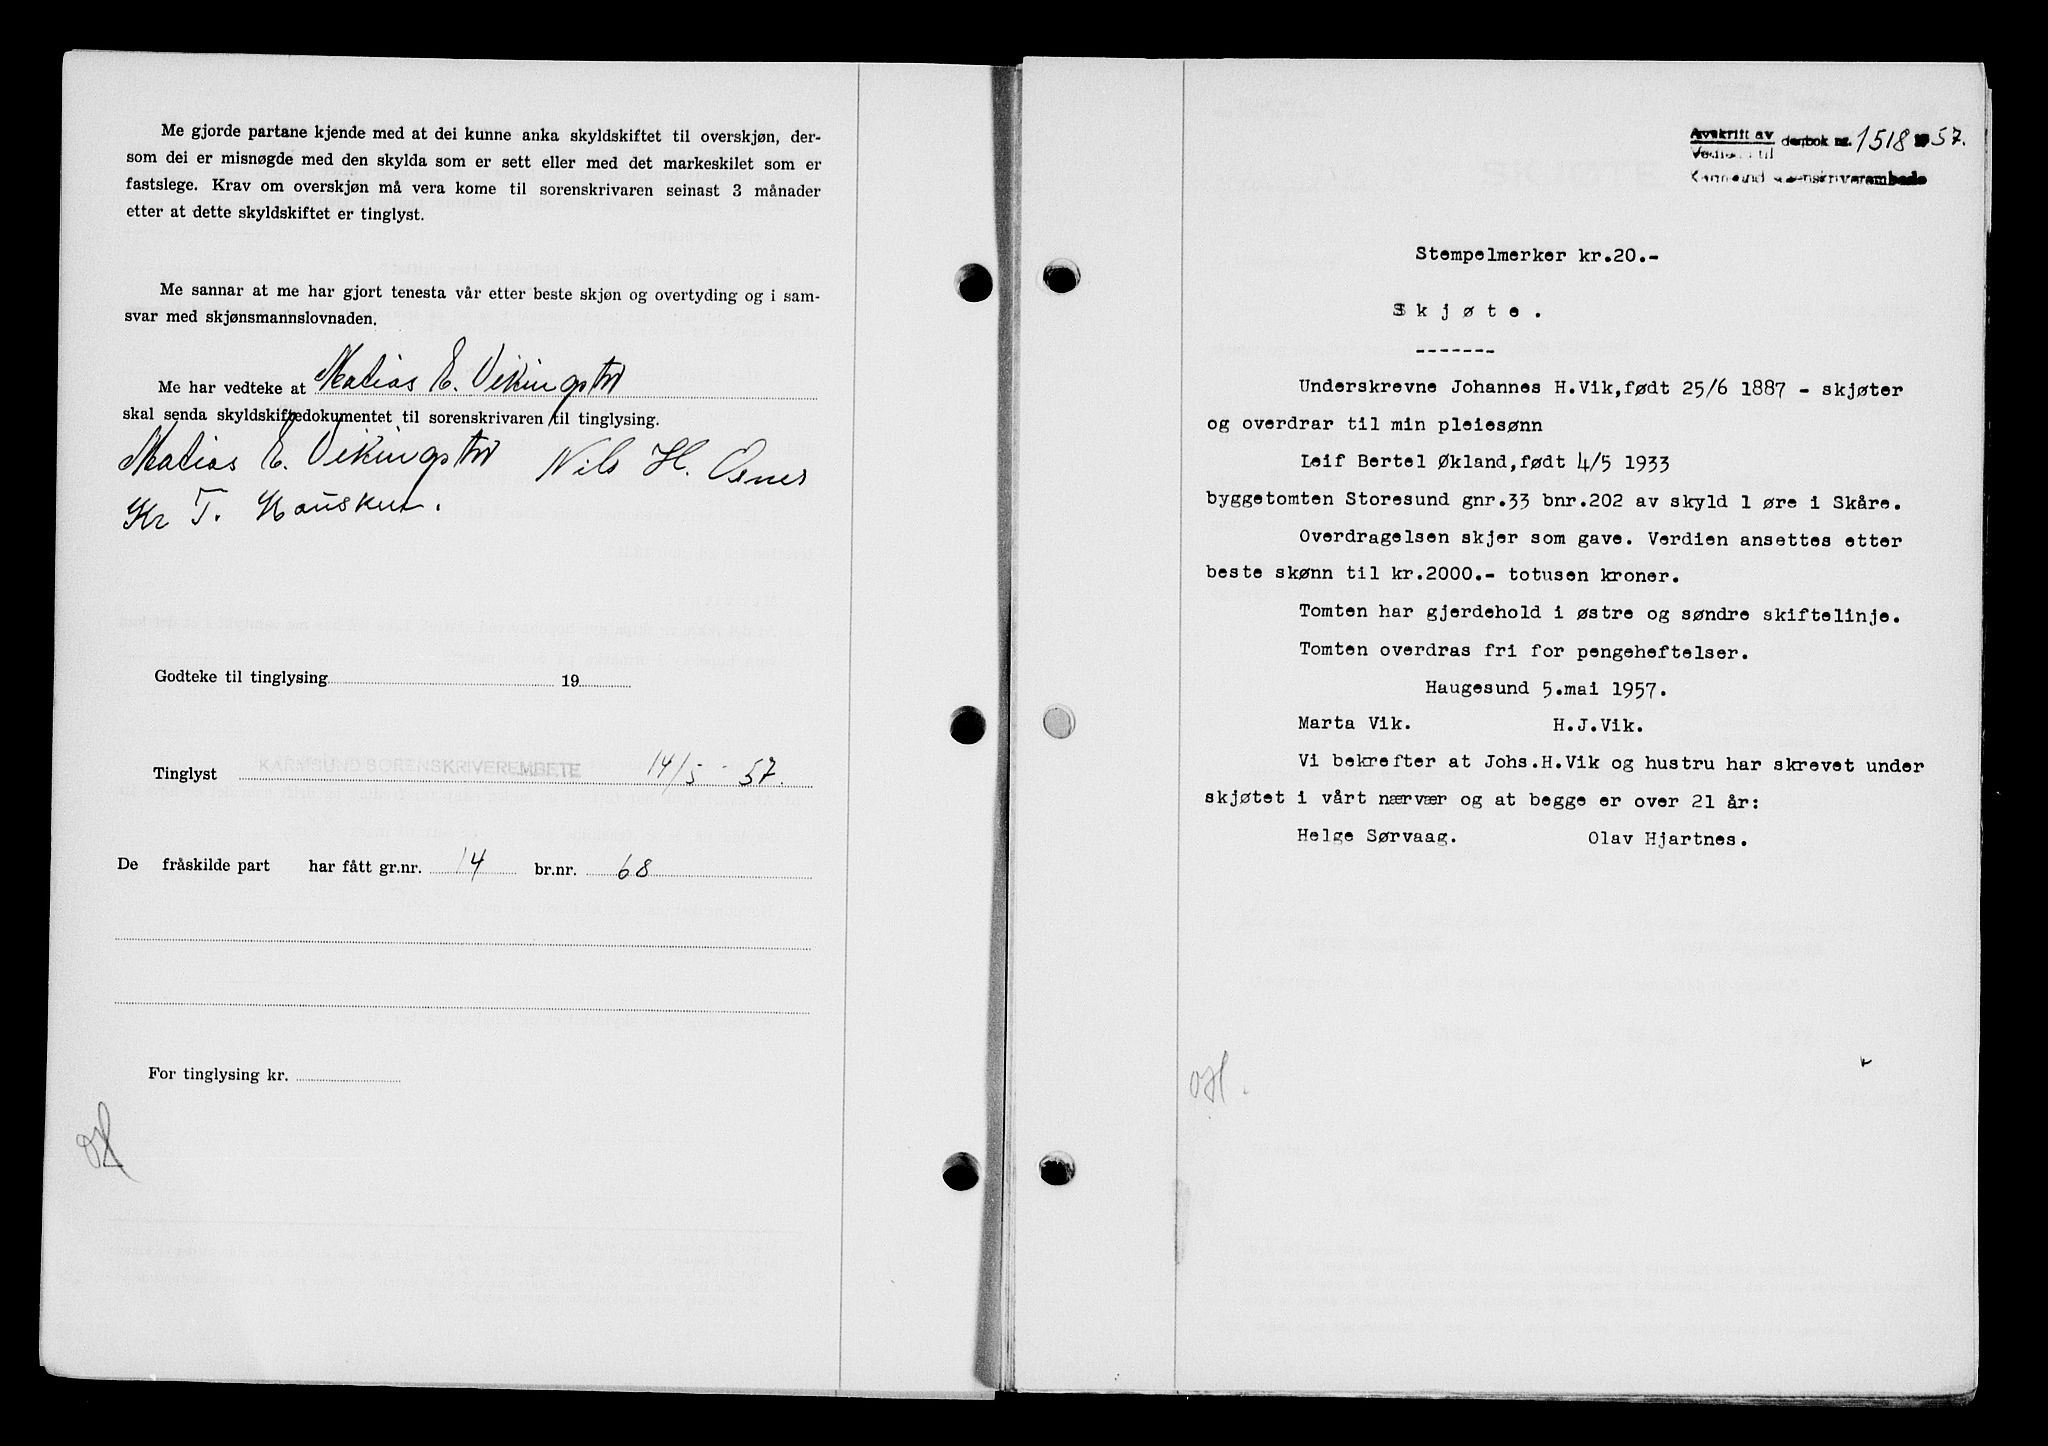 Me gjorde partane kjende med at dei kunne anka skyldskiftet til overskjøn, der-
som dei er misnøgde med den skylda som er sett eller med det markeskilet som er
fastslege. Krav om overskjøn må vera kome til sorenskrivaren seinast 3 månader
etter at dette skyldskiftet er tinglyst.
Me sannar at me har gjort tenesta vår etter beste skjøn og overtyding og i sam-
svar med skjønsmannslovnaden.
Me har vedteke at Matias E. Vikingstad
skal senda skyldskiftedokumentet til sorenskrivaren til tinglysing.
Matias E. Vikingstad Nils H. Osnes
Kr T. Hausken.
Godteke til tinglysing 19
Tinglyst KARMSUND SORENSKRIVEREMBETE 14/5 - 57.
De fråskilde part har fått gr.nr. 14 br.nr. 68
For tinglysing kr.
Avskrift av dagbok nr. 1518 1957.
Vedlegg til
Karmsund sorenskriverembede
Stempelmerker kr.20.-
Skjøte.
-------
Underskrevne Johannes H.Vik,født 25/6 1887 - skjøter
og overdrar til min pleiesønn
Leif Bertel Økland,født 4/5 1933
byggetomten Storesund gnr.33 bnr.202 av skyld 1 øre i Skåre.
Overdragelsen skjer som gave. Verdien ansettes etter
beste skønn til kr.2000.- totusen kroner.
Tomten har gjerdehold i østre og søndre skiftelinje.
Tomten overdras fri for pengeheftelser.
Haugesund 5.mai 1957.
Marta Vik. H.J.Vik.
Vi bekrefter at Johs.H.Vik og hustru har skrevet under
skjøtet i vårt nærvær og at begge er over 21 år:
Helge Sørvaag. Olav Hjartnes.